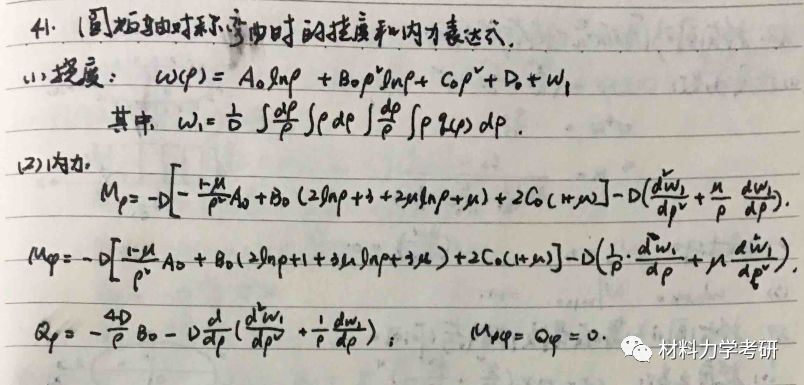 41. 圆板轴对称弯曲时的挠度和内力表达式.
(1) 挠度: ω(ρ) = A₀lnρ + B₀ρ²lnρ + C₀ρ² + D₀ + W₁
其中, W₁ = 1/D ∫ dρ/ρ ∫ρdρ ∫ dρ/ρ ∫ρ q(ρ) dρ.
(2) 内力.
Mρ = -D[ - (1-μ)/ρ² A₀ + B₀(2lnρ+3+2μlnρ+μ) + 2C₀(1+μ)] - D(d²w₁/dρ² + μ/ρ dw₁/dρ).
Mφ = -D[ (1-μ)/ρ² A₀ + B₀(2lnρ+1+3μlnρ+3μ) + 2C₀(1+μ)] - D(1/ρ · d²w₁/dρ + μ d²w₁/dρ²).
Qρ = - 4D/ρ B₀ - D d/dρ (d²w₁/dρ² + 1/ρ dw₁/dρ); Mρφ = Qφ = 0.
材料力学考研